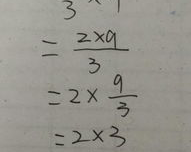 = 2×9/3
= 2 × 9/3
= 2 × 3